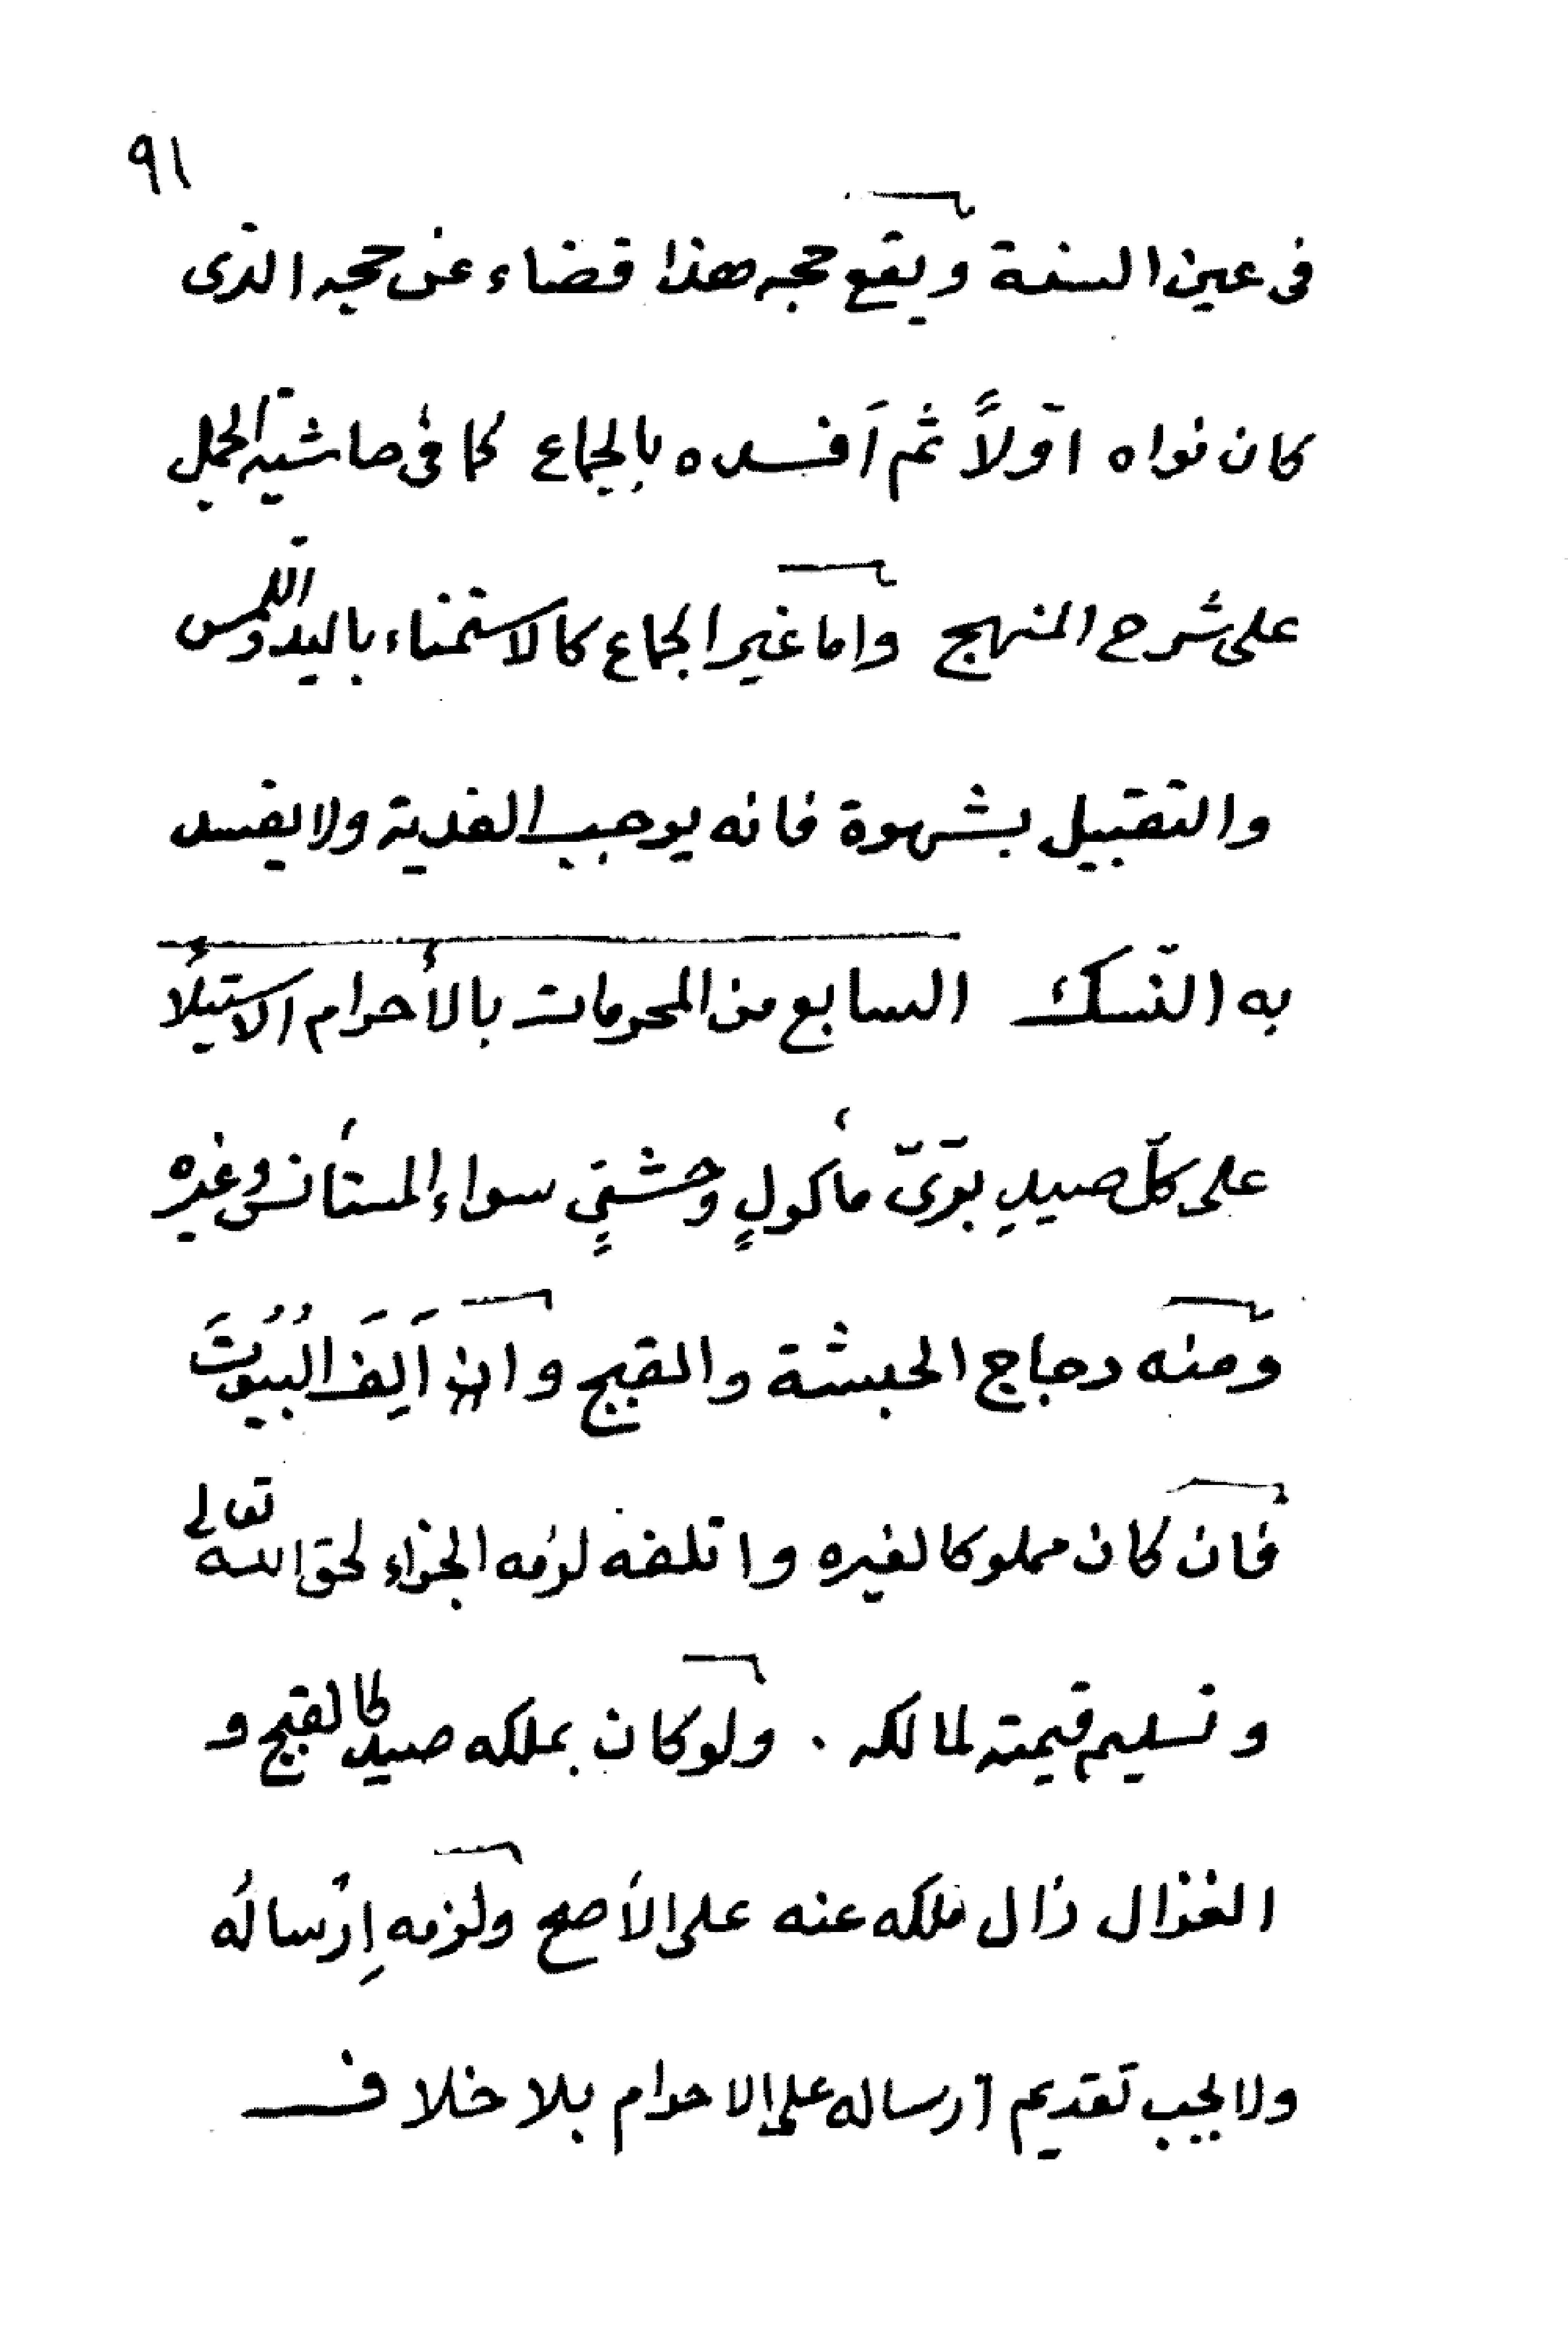 ٩١
فى عين السنة ويقع حجه هذا قضاء عن حجه الذى
كان نواه اوّلاً ثم اَفسده بالجماع كما فى حاشية الجمل
على شرح المنهج واما غير الجماع كالاستمناء باليد واللمس
والتقبيل بشهوة فانه يوجب الفدية ولا يفسد
به النّسك السابع من المحرمات بالأحرام الاستيلاء
على كلّ صيدٍ برّىّ مأكولٍ وحشىٍّ سواء المستأنس وغيره
ومنه دجاج الحبشة والقبج وان اَلِفَ الْبُيُوتَ
فان كان مملوكا لغيره واتلفه لزمه الجزاء لحق الله تعالى
وتسليم قيمته لمالكه . ولو كان بملكه صيد كالقبج و
الغزال زال ملكه عنه على الأصح ولزمه اِرْسالُه
ولا يجب تقديم ارساله على الاحرام بلا خلاف